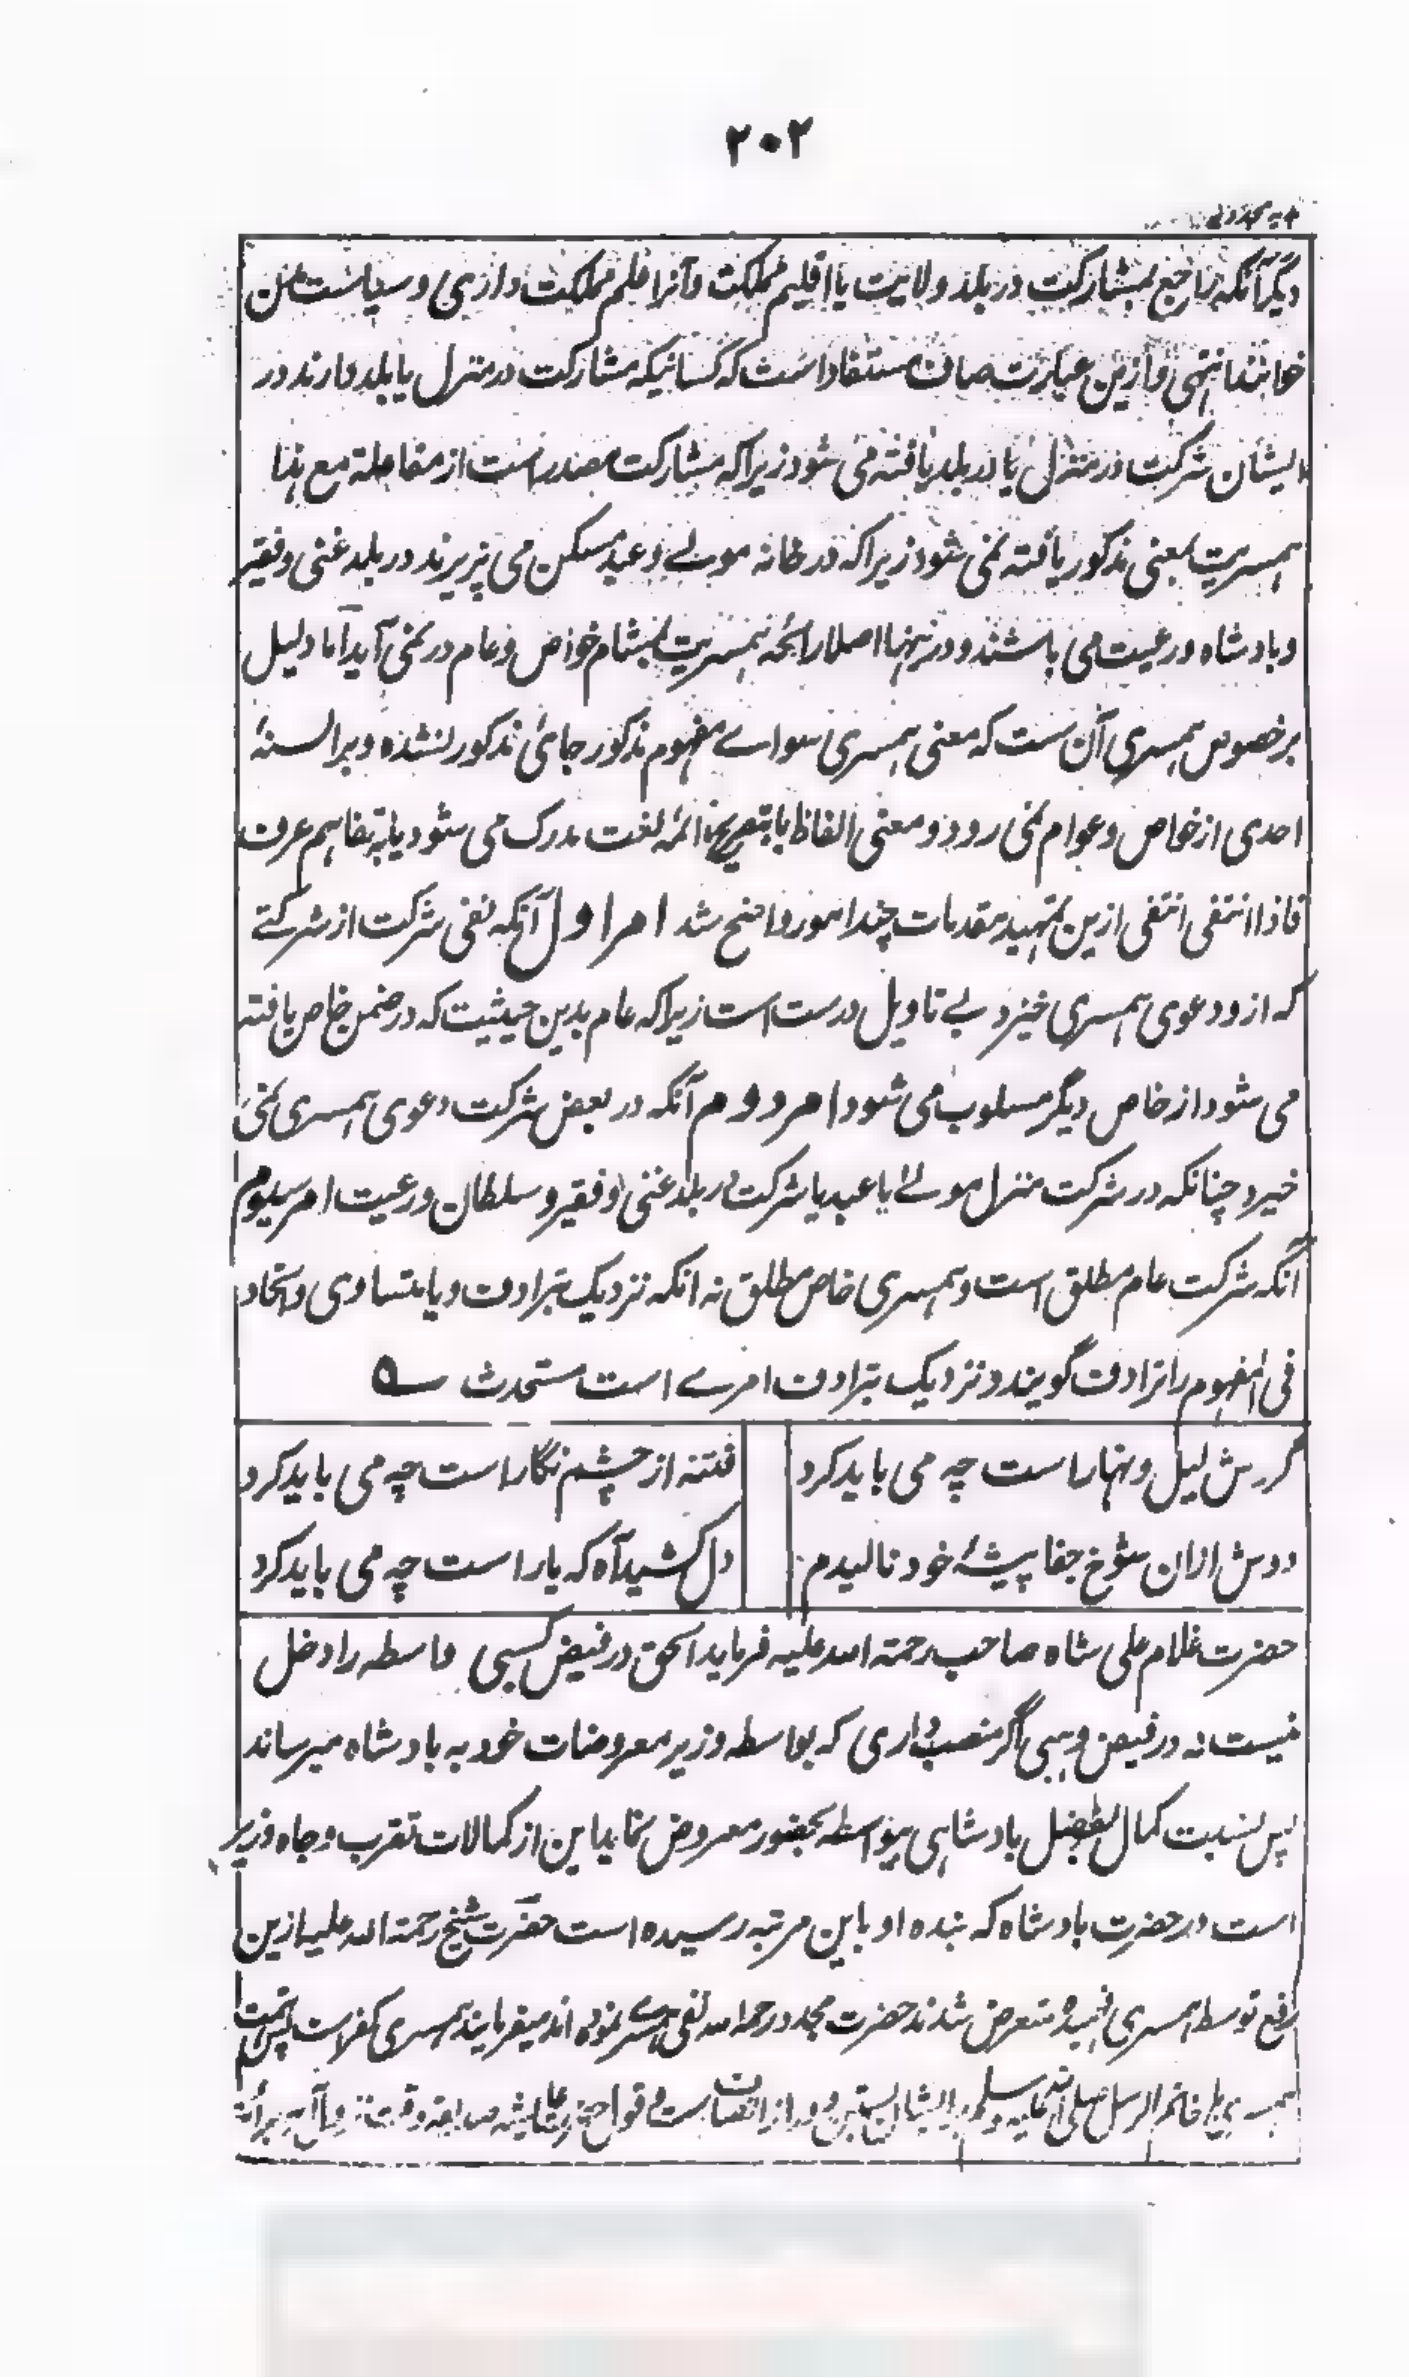 ۲۰۲
دیگر آنکه راجع بمشارکت در بلد و ولایت یا اقلیم مملکت و آنرا علم مملکت داری و سیاست مدن
خوانند انتهی و ازین عبارت صاف مستفاد است که کسانیکه مشارکت در منزل یا بلد دارند در
ایشان شرکت در منزل یا در بلد یافته می شود زیرا که مشارکت مصدر است از مفاعلة مع هذا
همسریت بمعنی مذکور یافته نمی شود زیرا که در خانه مولے و عبد مسکن می پزیرند در بلد غنی و فقیر
و بادشاه و رعیت می باشند و درینها اصلا رائحه همسریت بمشام خواص و عام در نمی آید آما دلیل
بر خصوص همسری آن ست که معنی همسری سواے مفهوم مذکور جائی مذکور نشده و بر السنهٔ
احدی از خواص و عوام نمی رود و معنی الفاظ یا بتصریح ائمه لغت مدرک می شود یا بتفاهم عرف
فاذا انتفی انتفی ازین تمهید مقدمات چند امور واضح شد امر اول آنکه نفی شرکت از شرکتے
که ازو دعوی همسری خیزد بے تاویل درست است زیرا که عام بدین حیثیت که در ضمن خاص یافته
می شود از خاص دیگر مسلوب می شود امر دوم آنکه در بعض شرکت دعوی همسری نمی
خیزد چنانکه در شرکت منزل مولے با عبد یا شرکت در بلد غنی و فقیر و سلطان و رعیت امر سیوم
آنکه شرکت عام مطلق است و همسری خاص مطلق نه آنکه نزدیک بترادف و یا متساوی و اتحاد
فی المفهوم را ترادف گویند و نزدیک بترادف امرے است مستحدث ؎
گردش لیل و نهار است چه می باید کرد فتنه از چشم نگار است چه می باید کرد
دوش ازان شوخ جفا پیشهٔ خود نالیدم دل کشید آه که یار است چه می باید کرد
حضرت غلام علی شاه صاحب رحمته الله علیه فرماید الحق در فیض کسبی واسطه را دخل
نیست نه در فیض وهبی اگر منصب داری که بواسطه وزیر معروضات خود به بادشاه میرساند
پس بنسبت کمال بفضل بادشاهی بیواسطه بحضور معروض نماید این از کمالات تقرب و جاه وزیر
است در حضرت بادشاه که بنده او باین مرتبه رسیده است حضرت شیخ رحمته الله علیه ازین
رفع توسط همسری فهمیده متعرض شدند حضرت مجدد رحمه الله نفی همسرے نموده اند میفرمایند همسری کفر است پس تهمت
همسری با خاتم الرسل صلی الله علیه وسلم بر ایشان بستن دور از انصاف است و قول حضرت عائشه صدیقه وقت نزول آیه برأت